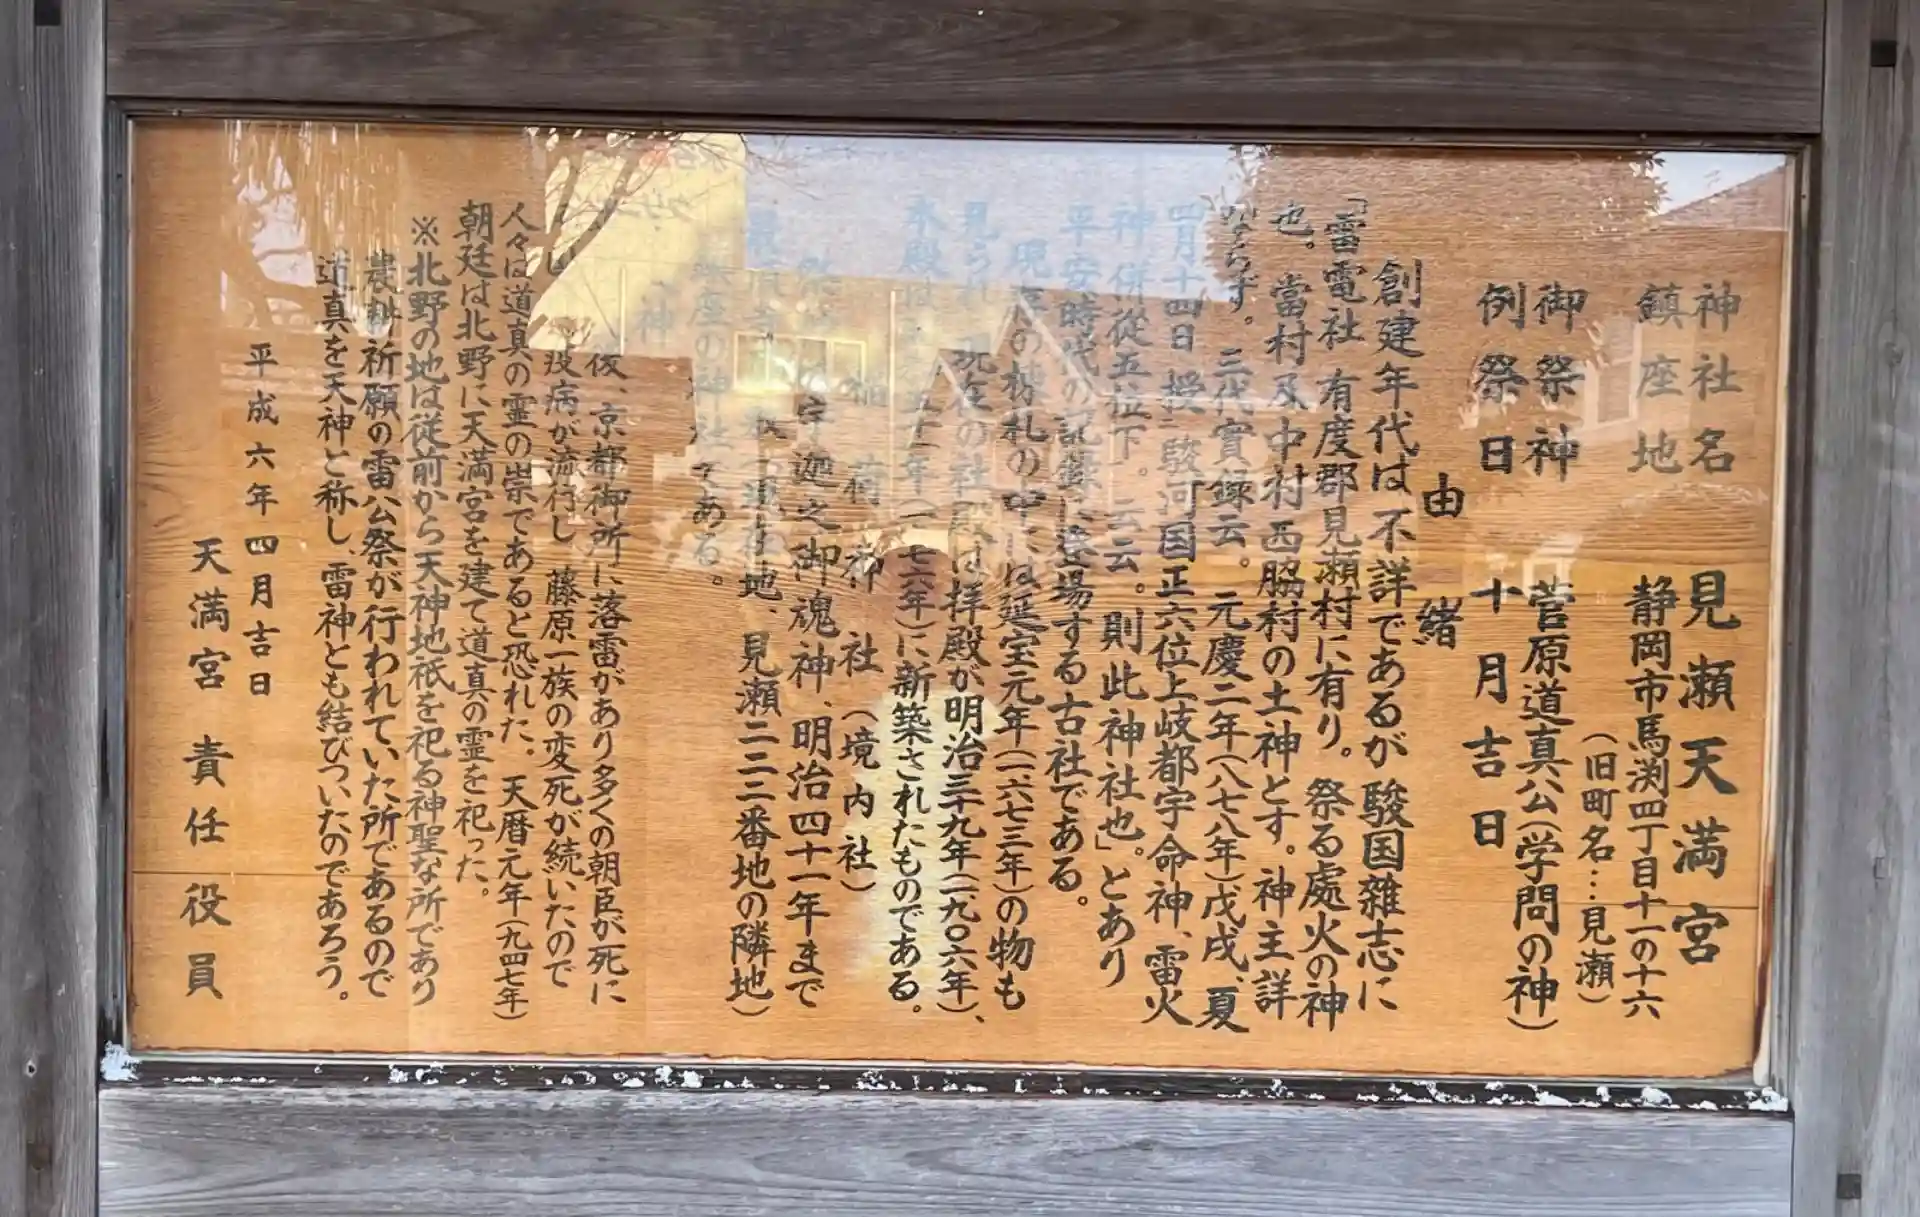 神社名 見瀬天満宮
鎮座地 静岡市馬渕四丁目十一の十六
(旧町名…見瀬)
御祭神 菅原道真公(学問の神)
例祭日 十月吉日
由緒
創建年代は不詳であるが駿国雑志に
「雷電社 有度郡見瀬村に有り。祭る處火の神
也。當村及中村西脇村の土神とす。神主詳
ならず。三代實録云。元慶二年(八七八年)戊戌、夏
四月十四日 授駿河国正六位上岐都宇命神、雷火
神併從五位下。云云。則此神社也。」とあり
平安時代の記録に登場する古社である。
現存の棟札の中には延宝元年(一六七三年)の物も
見られ 現在の社殿は拝殿が明治三十九年(一九〇六年)、
本殿は 年(一 七六年)に新築されたものである。
稲荷神社(境内社)
宇迦之御魂神、明治四十一年まで
地、見瀬二二二番地の隣地)
座の神社である。
神
後、京都御所に落雷があり多くの朝臣が死に
疫病が流行し 藤原一族の変死が続いたので
人々は道真の霊の祟であると恐れた。天暦元年(九四七年)
朝廷は北野に天満宮を建て道真の霊を祀った。
※北野の地は従前から天神地祇を祀る神聖な所であり
農耕祈願の雷公祭が行われていた所であるので
道真を天神と称し、雷神とも結びついたのであろう。
平成六年四月吉日
天満宮責任役員